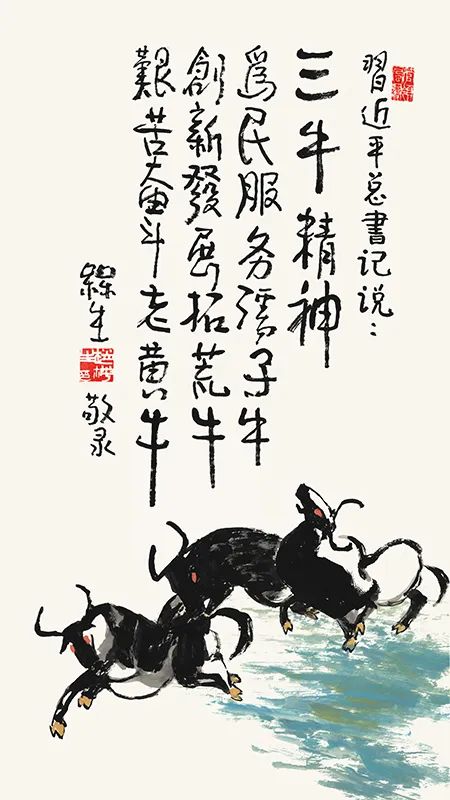 習近平总書记说：
三牛精神
為民服务孺子牛
創新發展拓荒牛
艱苦奮斗老黄牛
敬录